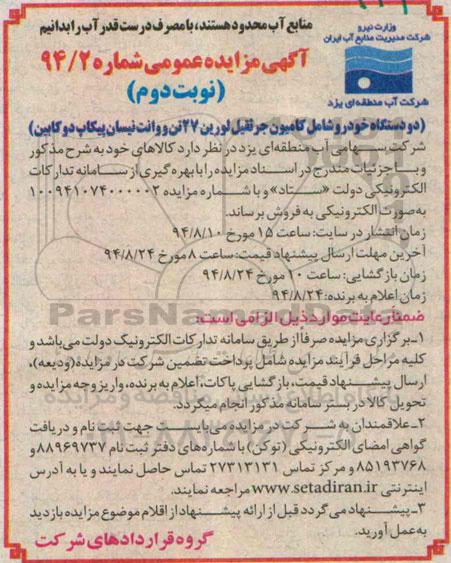 منابع آب محدود هستند، با مصرف درست قدر آب را بدانیم
وزارت نیرو
شرکت مدیریت منابع آب ایران
شرکت آب منطقه‌ای یزد
آگهی مزایده عمومی شماره ۹۴/۲
(نوبت دوم)
(دو دستگاه خودرو شامل کامیون جرثقیل لورین ۲۷ تن و وانت نیسان پیکاپ دو کابین)
شرکت سهامی آب منطقه‌ای یزد در نظر دارد کالاهای خود به شرح مذکور
و با جزئیات مندرج در اسناد مزایده را با بهره گیری از سامانه تدارکات
الکترونیکی دولت «ستاد» و با شماره مزایده ۱۰۰۹۴۱۰۷۴۰۰۰۰۰۲
به‌صورت الکترونیکی به فروش برساند.
زمان انتشار در سایت: ساعت ۱۵ مورخ ۹۴/۸/۱۰
آخرین مهلت ارسال پیشنهاد قیمت: ساعت ۸ مورخ ۹۴/۸/۲۴
زمان بازگشایی: ساعت ۱۰ مورخ ۹۴/۸/۲۴
زمان اعلام به برنده: ۹۴/۸/۲۴
ضمناً رعایت موارد ذیل الزامی است:
۱-برگزاری مزایده صرفاً از طریق سامانه تدارکات الکترونیک دولت می‌باشد و
کلیه مراحل فرآیند مزایده شامل پرداخت تضمین شرکت در مزایده (ودیعه)،
ارسال پیشنهاد قیمت، بازگشایی پاکات، اعلام به برنده، واریز وجه مزایده و
تحویل کالا در بستر سامانه مذکور انجام میگردد.
۲-علاقمندان به شرکت در مزایده می‌بایست جهت ثبت نام و دریافت
گواهی امضای الکترونیکی (توکن) با شماره‌های دفتر ثبت نام ۸۸۹۶۹۷۳۷ و
۸۵۱۹۳۷۶۸ و مرکز تماس ۲۷۳۱۳۱۳۱ تماس حاصل نمایند و یا به آدرس
اینترنتی www.setadiran.ir مراجعه نمایند.
۳-پیشنهاد می گردد قبل از ارائه پیشنهاد از اقلام موضوع مزایده بازدید
به عمل آورید.
گروه قراردادهای شرکت